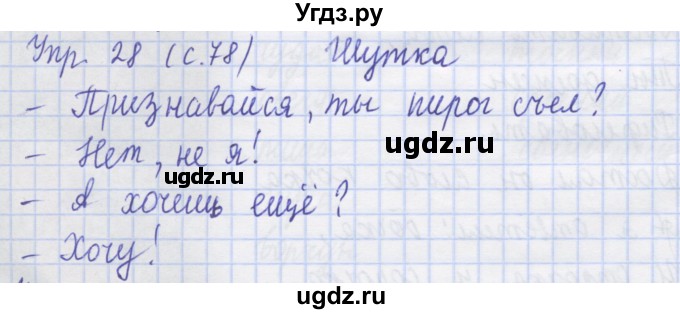 Угдз.ру
Упр. 28 (с.78) Шутка
- Признавайся, ты пирог съел?
ugdz.ru
- Нет, не я!
ugdz.ru
- А хочешь ещё?
- Хочу!
ugdz.ru
ugdz.ru